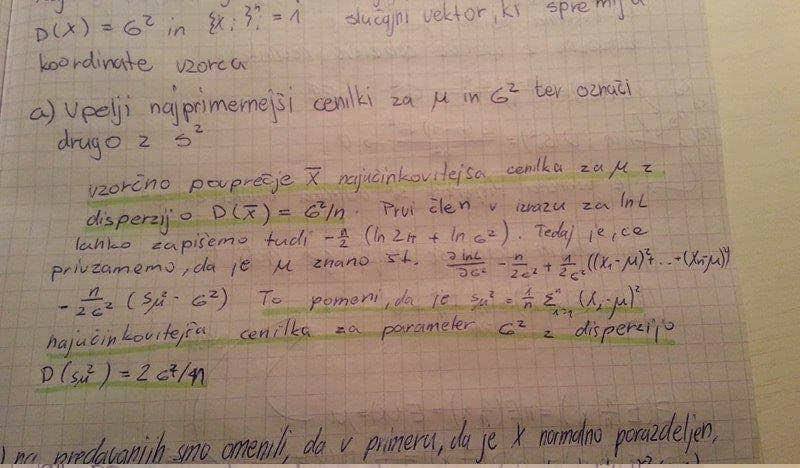 D(X) = σ² in {X_i}ⁿ_i = 1 slučajni vektor, ki spremlja
koordinate vzorca
a) Vpelji najprimernejši cenilki za μ in σ² ter označi
drugo z s²
vzorčno povprečje X̄ najučinkovitejša cenilka za μ z
disperzijo D(X̄) = σ²/n. Prvi člen v izrazu za lnL
lahko zapišemo tudi -n/2 (ln2π + lnσ²). Tedaj je, če
privzamemo, da je μ znano št. ∂lnL/∂σ² - n/2σ² + 1/2σ² ((x₁-μ)² + ... + (xₙ-μ)²)
- n/2σ² (s_μ² - σ²) To pomeni, da je s_μ² = 1/n Σⁿ_i=1 (X_i - μ)²
najučinkovitejša cenilka za parameter σ² z disperzijo
D(s_μ²) = 2σ⁴/n
) na predavanjih smo omenili, da v primeru, da je X normalno porazdeljen,